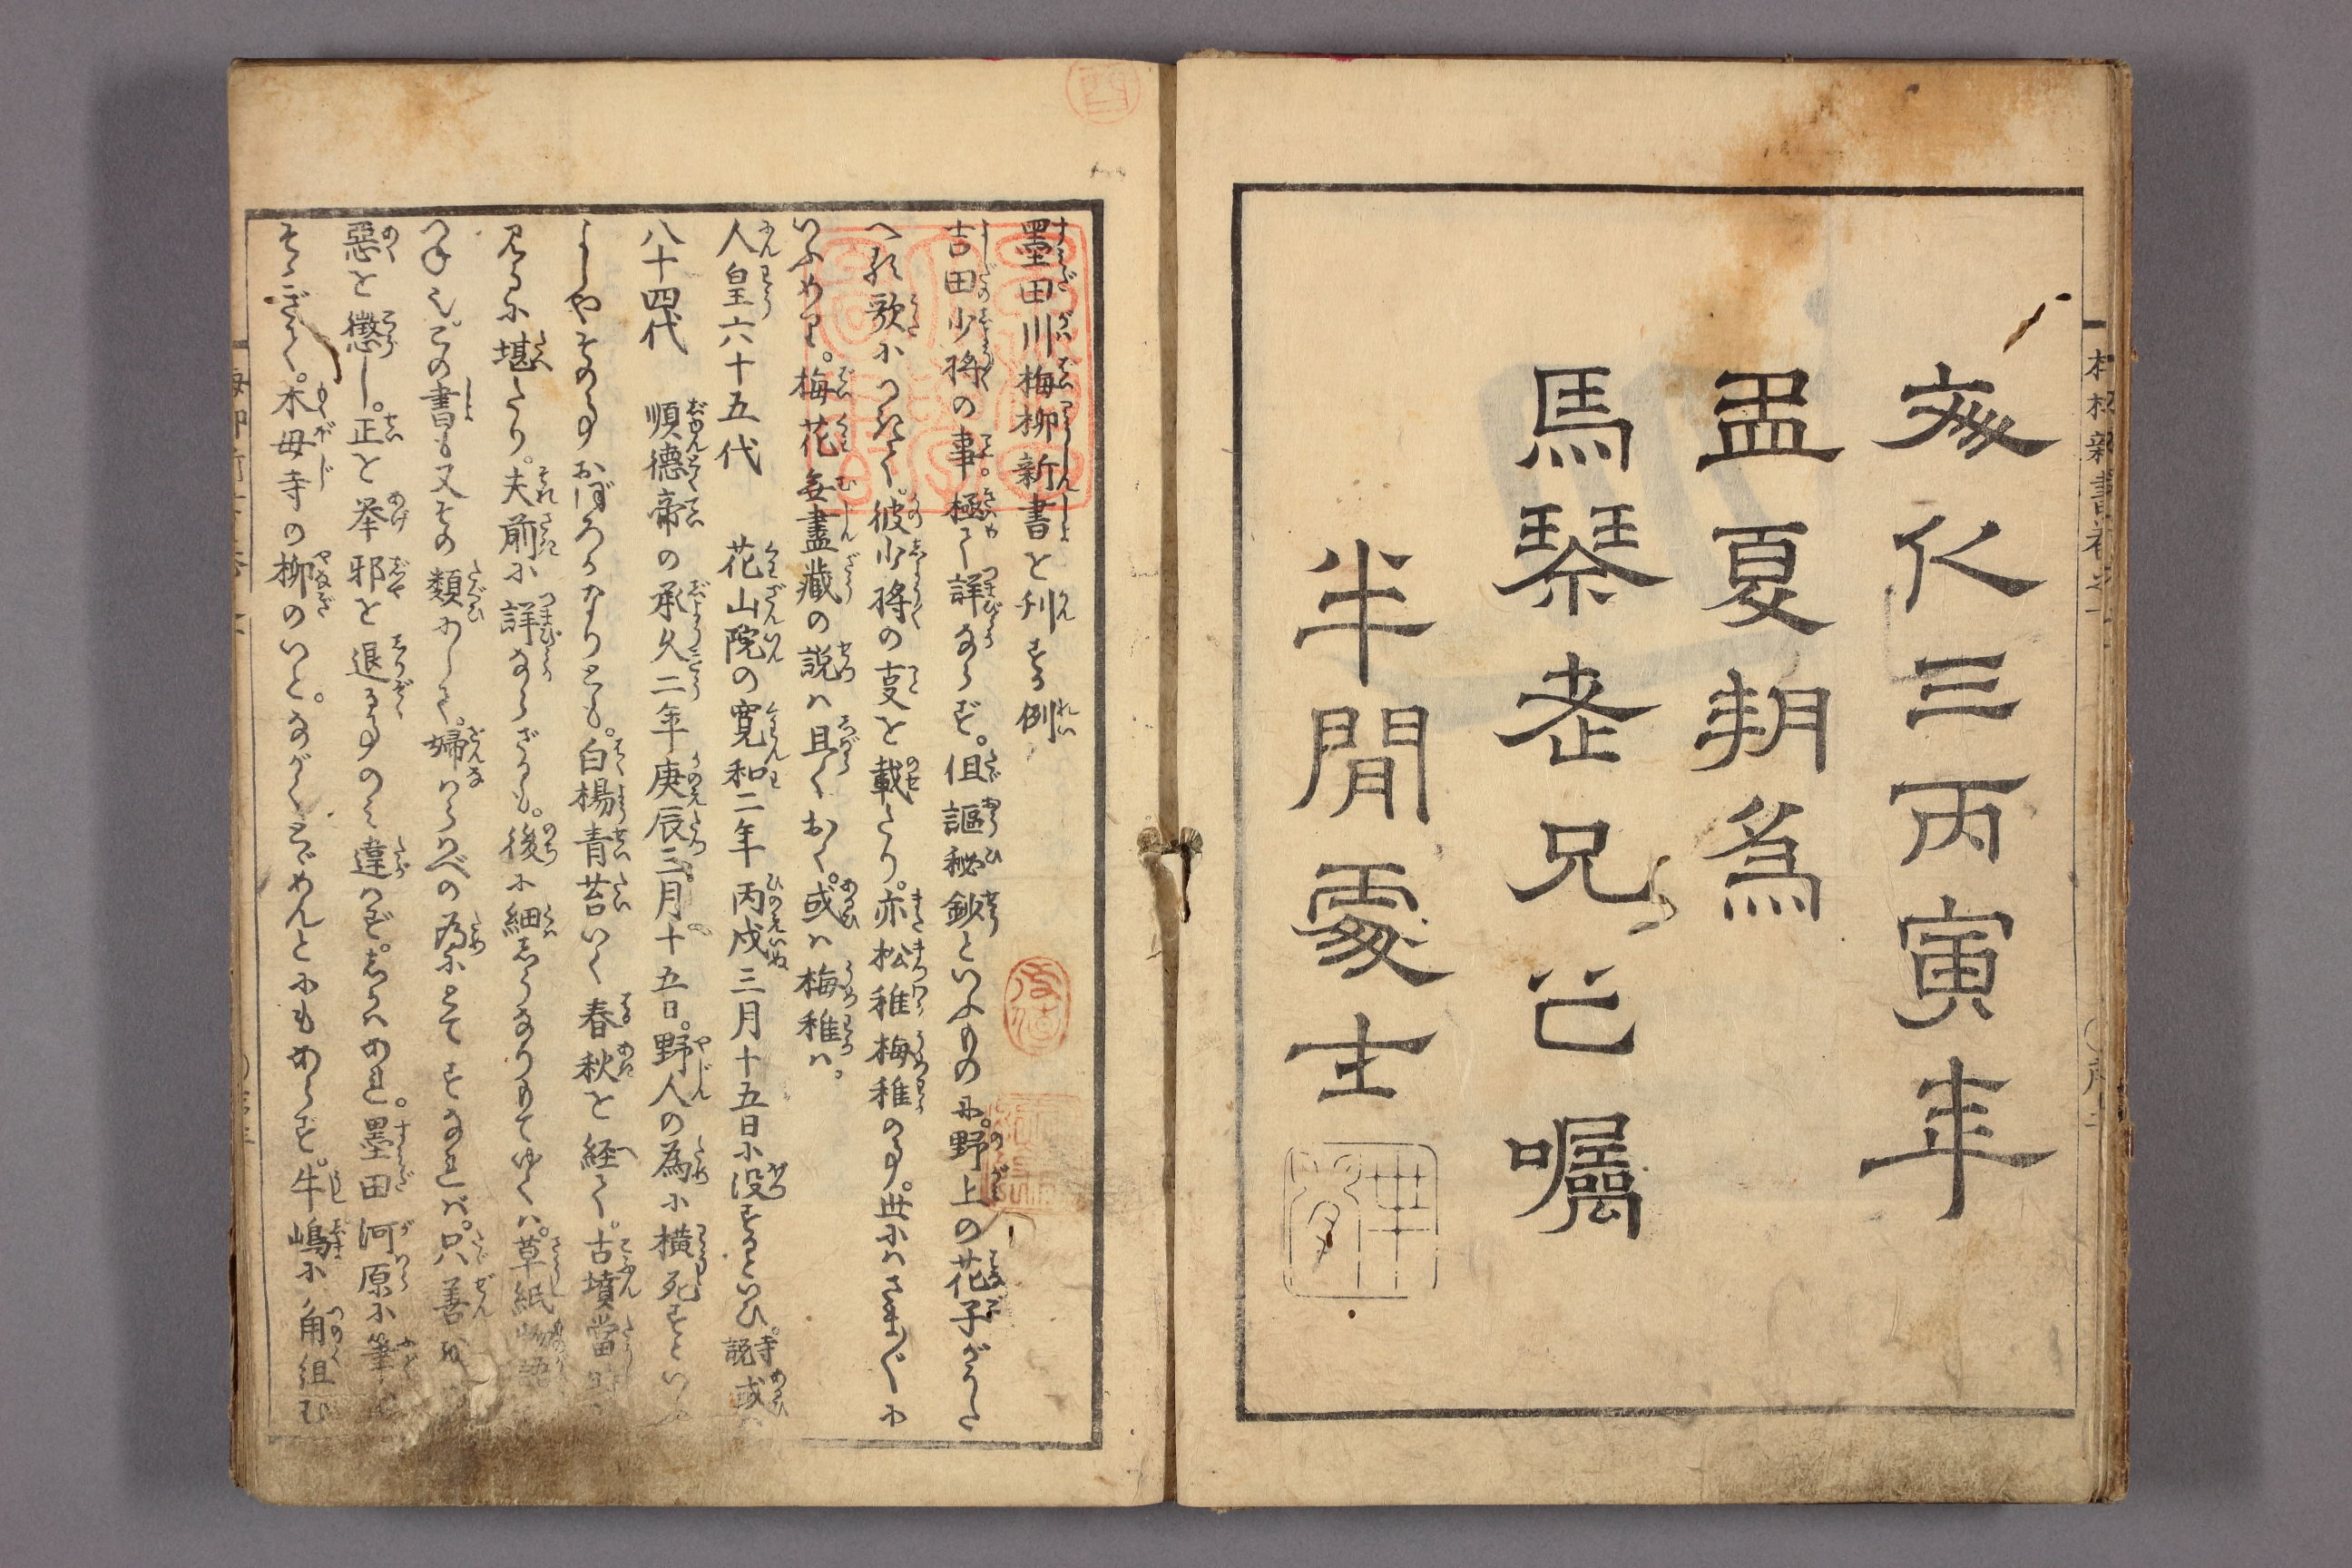 文化三丙寅年
孟夏朔為
馬琴老兄之囑
半閒處士
墨田川梅柳新書を刊する例
吉田少将の事。極て詳ならず。但謳秘鈔といふものに。野上の花子がうた
へる歌につきて。彼少将の事を載たり。亦松稚梅稚の事。世にはさま〴〵に
いふめり。梅花無盡蔵の説は且くおく。或は梅稚は。
人皇六十五代 花山院の寛和二年丙戌三月十五日に没するといひ。寺説或
八十四代 順徳帝の承久二年庚辰三月十五日。野人の為に横死すといふ
よしやその事おぼろかなりとも。白楊青苔いく春秋を経て。古墳當時
見るに堪たり。夫前に詳ならざるも。後に細しうなりもてゆくは。草紙物語
つね也。この書も又その類ひにして。婦わらべの為にとてすなれば。只善
惡を懲し。正を挙邪を退る事のみ違はず。しかはあれど。墨田河原に筆
そゝぎて。木母寺の柳のいと。ながくとゞめんとにもあらず。牛嶋に角組む